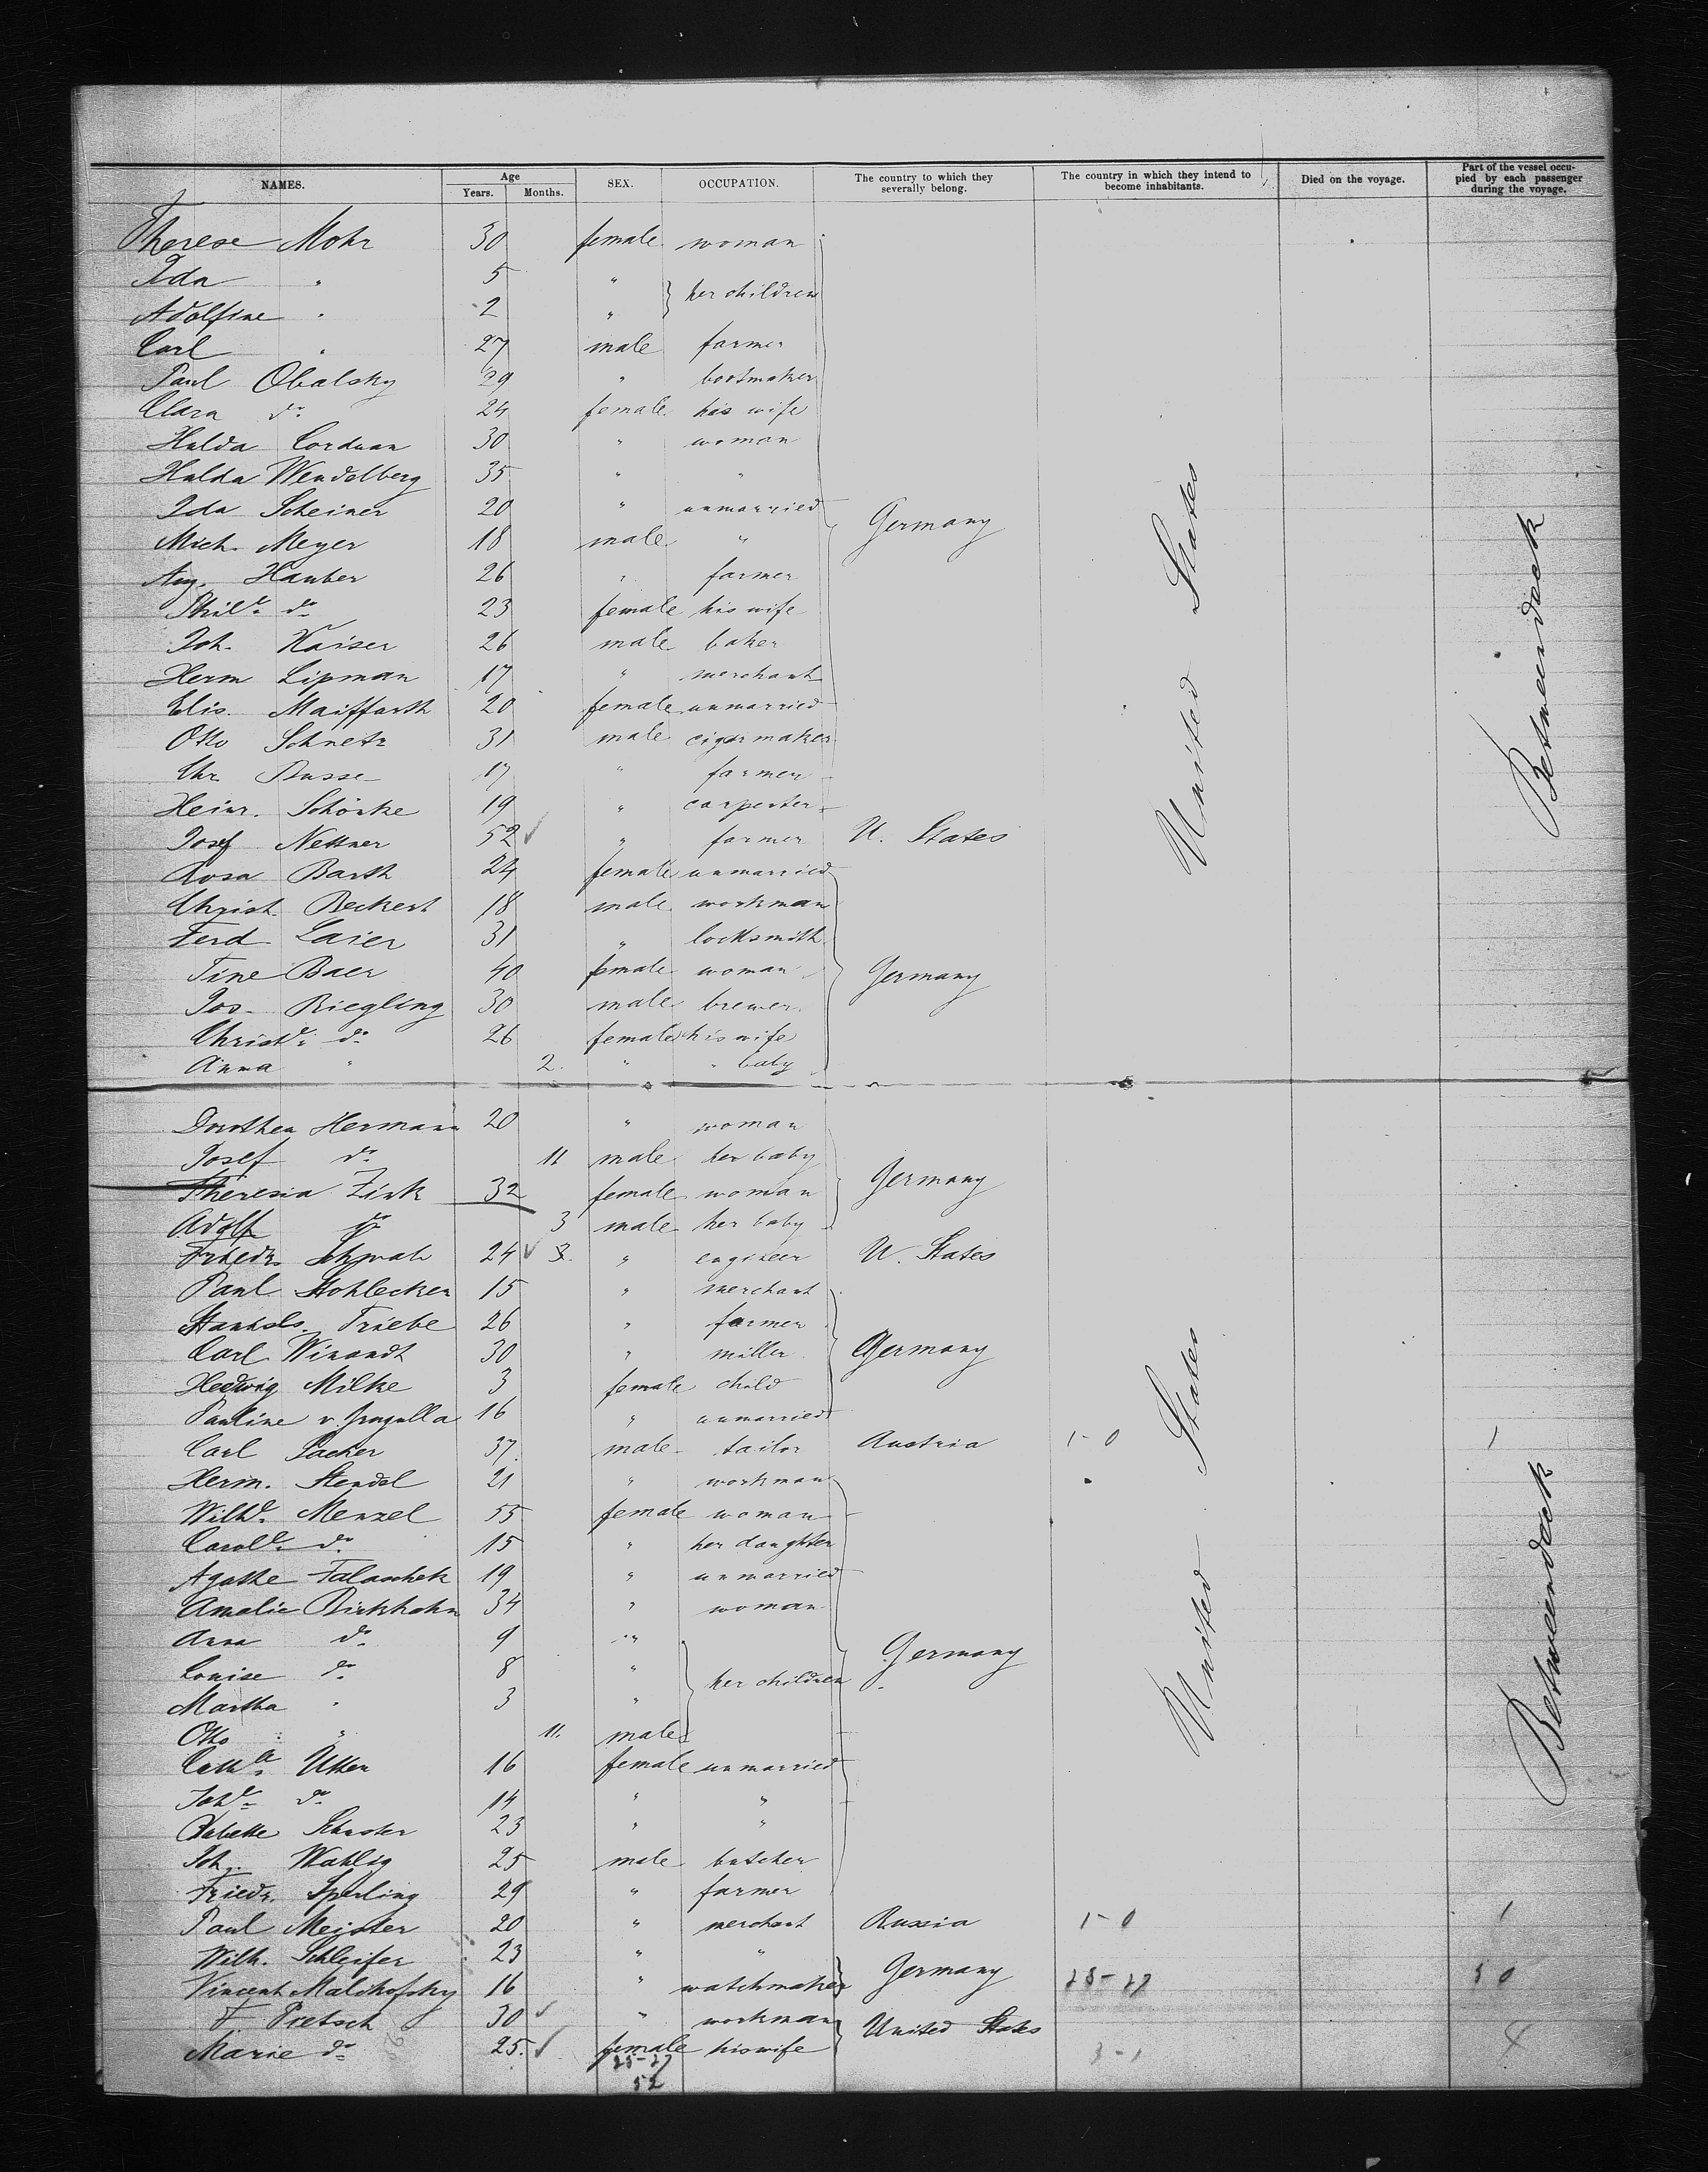 NAMES. Age Years. Months. SEX. OCCUPATION. The country to which they severally belong. The country in which they intend to become inhabitants. Died on the voyage. Part of the vessel occupied by each passenger during the voyage.
Therese Mohr 30 female woman
Ida " 5 " } her children
Adolfine " 2 "
Carl " 27 male farmer
Paul Obalsky 29 " bootmaker
Clara do 24 female his wife
Hulda Corduan 30 " woman
Hulda Wendelberg 35 " "
Ida Scheiner 20 " unmarried Germany
Mich. Meyer 18 male "
Aug. Hauber 26 " farmer
Phile do 23 female his wife
Joh. Kaiser 26 male baker
Herm Lipman 17 " merchant
Elis. Maiffarth 20 female unmarried
Otto Schnetz 31 male cigarmaker
Chr. Busse 17 " farmer
Heinr. Schönke 19 " carpenter
Josef Nettner 52 " farmer U. States
Rosa Barth 24 female unmarried
Christ. Beckert 18 male workman
Ferd Laier 31 " locksmith
Tine Baer 40 female woman Germany
Jos. Riegling 30 male brewer
Christe do 26 female his wife
Anna " 2. " " baby
United States
Betweendeck
Dorothea Hermann 20 " woman
Josef do 11 male her baby
Theresia Zink 32 female woman Germany
Adolf do 3 male her baby
Friedr. Schwab 24 3. " engineer U. States
Paul Stohlecker 15 " merchant
Stanisls. Triebe 26 " farmer
Carl Winandt 30 " miller Germany
Hedwig Milke 3 female child
Pauline v. 16 " unmarried
Carl Packer 37. male tailor Austria 1-0 1
Herm. Stendel 21 " workman
Wilhe Menzel 55 female woman
Carole do 15 " her daughter
Agathe Falaschek 19 " unmarried
Amalie Birkhahn 34 " woman
Anna do 9 "
Louise do 8 " } her children Germany
Martha " 3 "
Otto " 11. male
Catha Utten 16 female unmarried
Johe do 14 " "
Babette Schuster 23 " "
Joh. Wahlig 25 male butcher
Friedr. Sperling 29 " farmer
Paul Meister 20 " merchant Russia 1-0 1
Wilh. Schleifer 23 " "
Vincent Malchofsky 16 " watchmaker Germany 25-27 50
F Pietsch 30 " workman United States
Marie do 25. female his wife 3-1
25-27
52
United States
Betweendeck